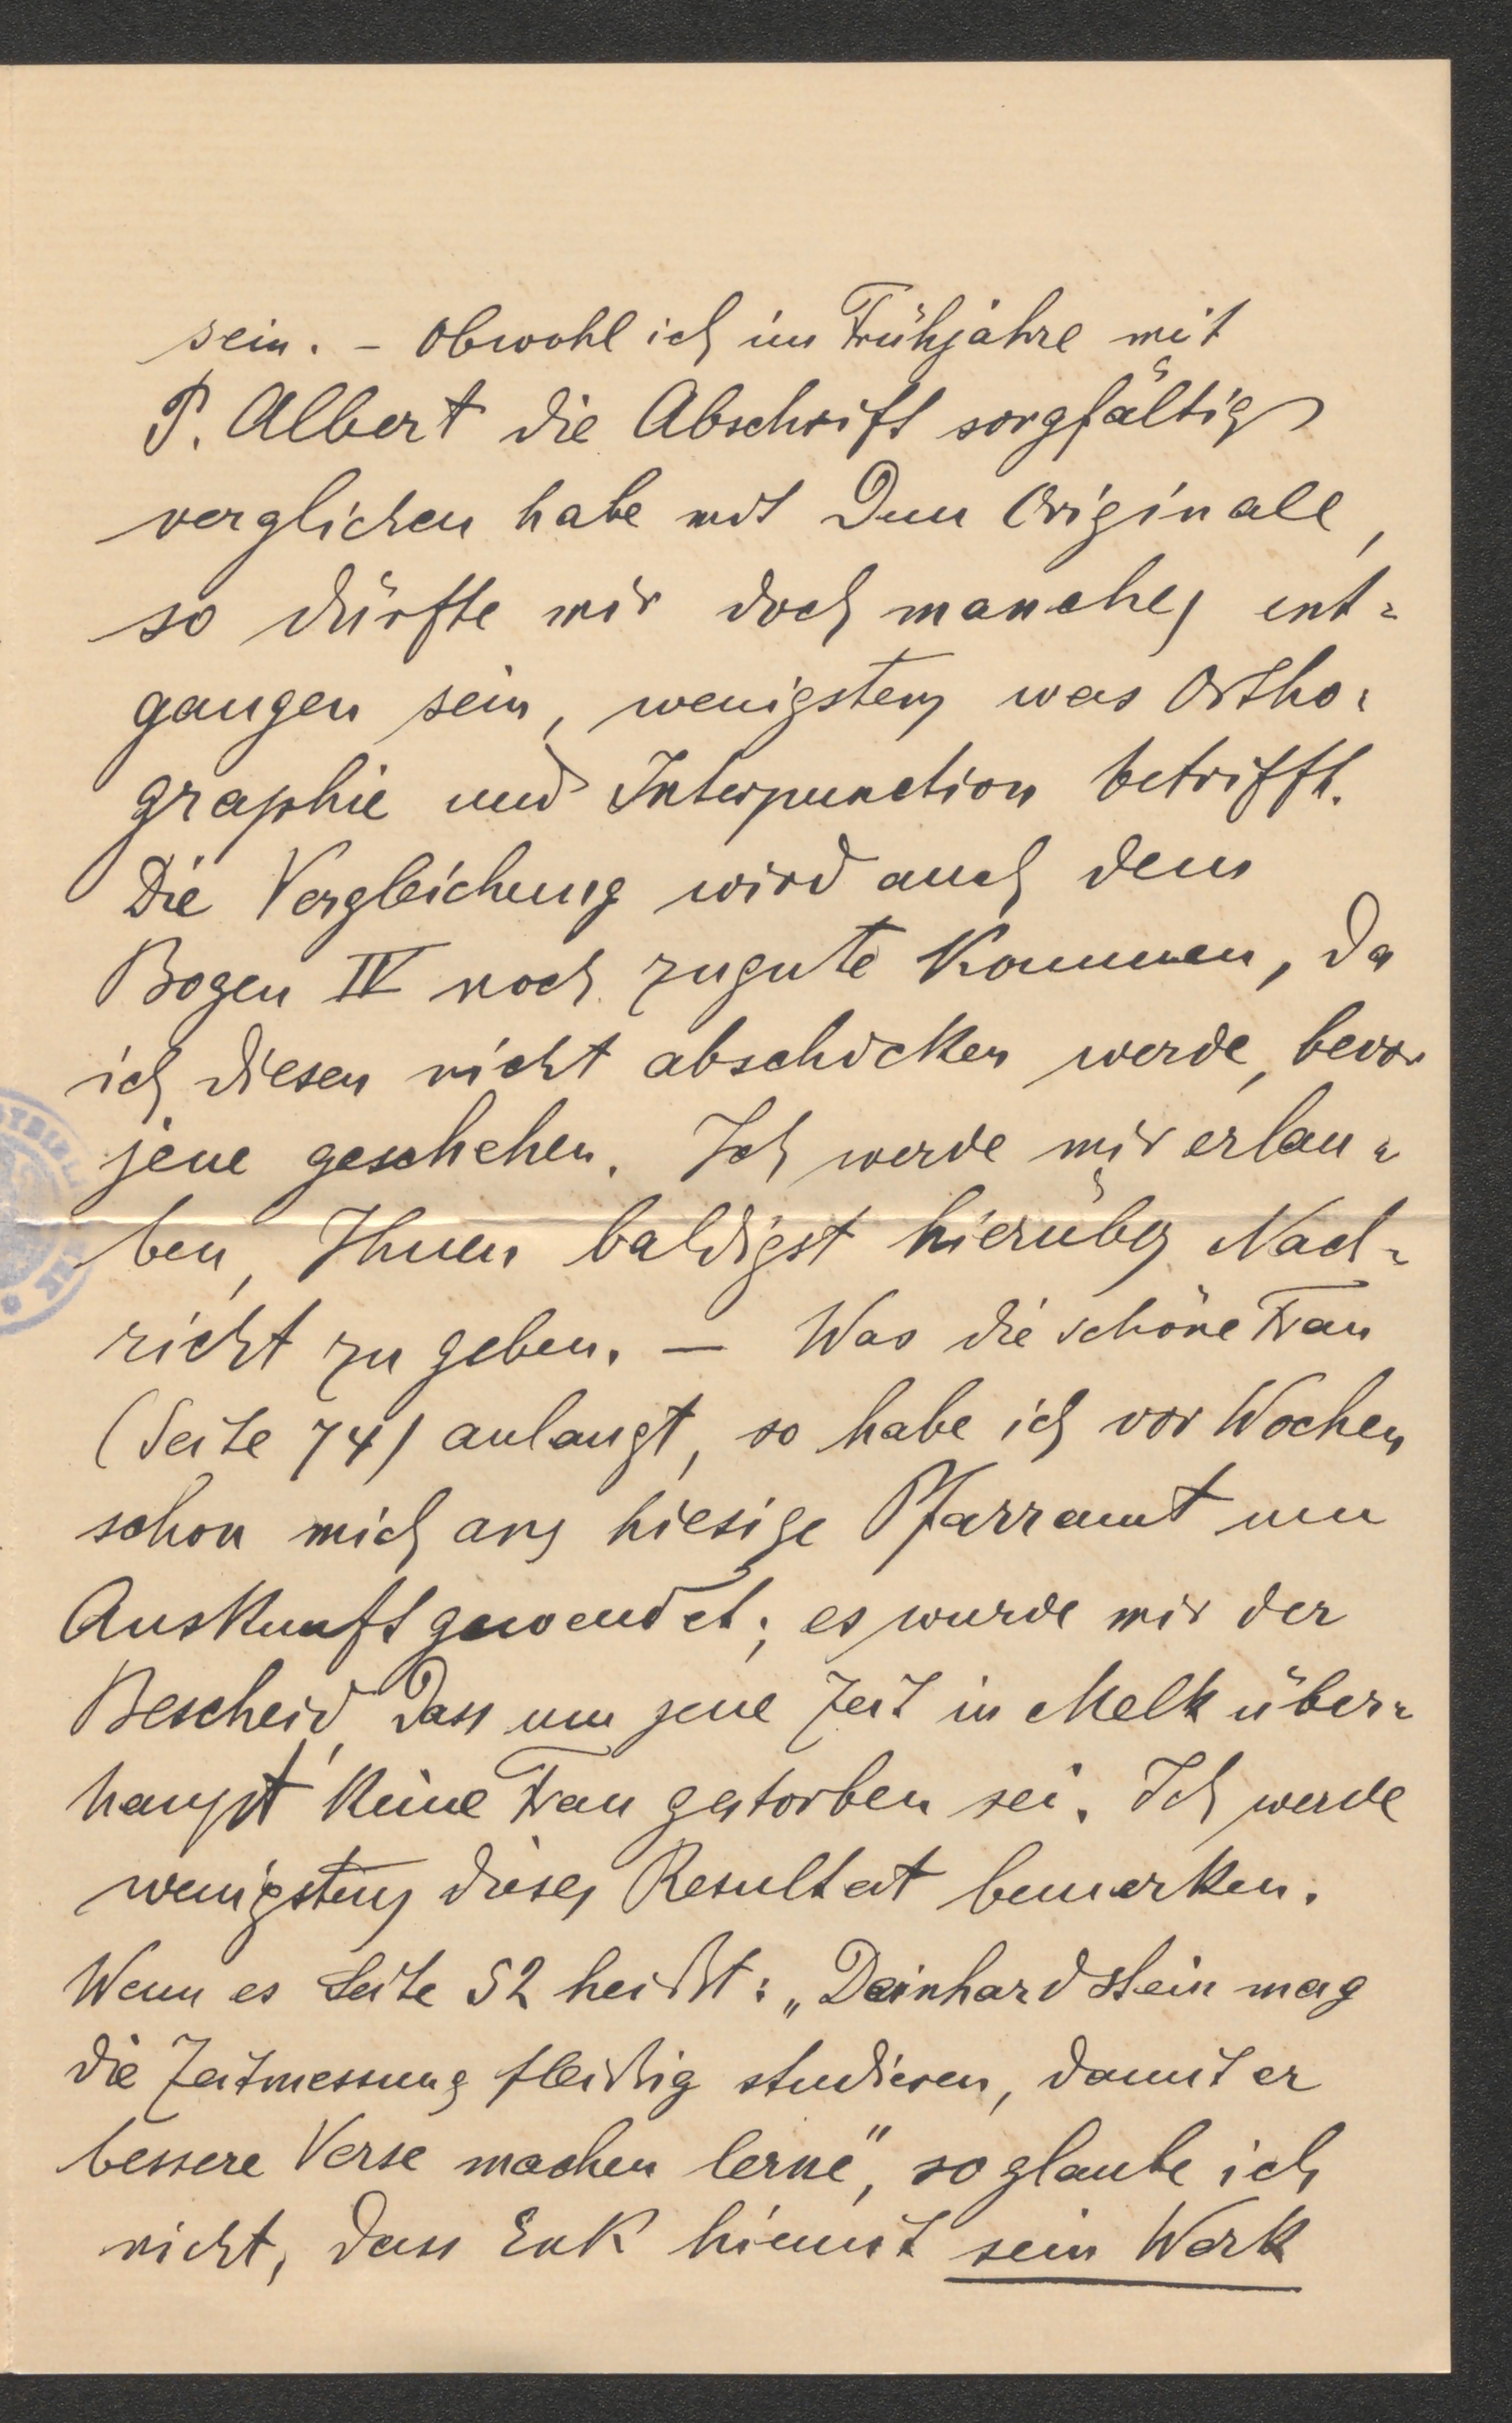 sein. – Obwohl ich im Frühjahre mit
P. Albert die Abschrift sorgfältig
verglichen habe mit dem Originale,
so dürfte mir doch manches ent-
gangen sein, wenigstens was Ortho-
graphie und Interpunction betrifft.
Die Vergleichung wird auch dem
Bogen IV noch zugute kommen, da
ich diesen nicht abschicken werde, bevor
jene geschehen. Ich werde mir erlau-
ben, Ihnen baldigst hierüber Nach-
richt zu geben. — Was die schöne Frau
(Seite 74) anlangt, so habe ich vor Wochen
schon mich ans hiesige Pfarramt um
Auskunft gewendet; es wurde mir der
Bescheid, dass um jene Zeit in Melk über-
haupt keine Frau gestorben sei. Ich werde
wenigstens dieses Resultat bemerken.
Wenn es Seite 52 heißt: „Deinhardstein mag
die Zeitmessung fleißig studieren, damit er
bessere Verse machen lerne", so glaube ich
nicht, dass Enk hiemit sein Werk